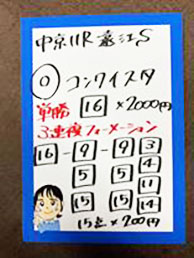 中京11R 遠江S
◎ コンクイスタ
単勝 16 ×2000円
3連複フォーメーション
16 - 9 - 9 3
5 5 4
15 15 11
14
15点×200円